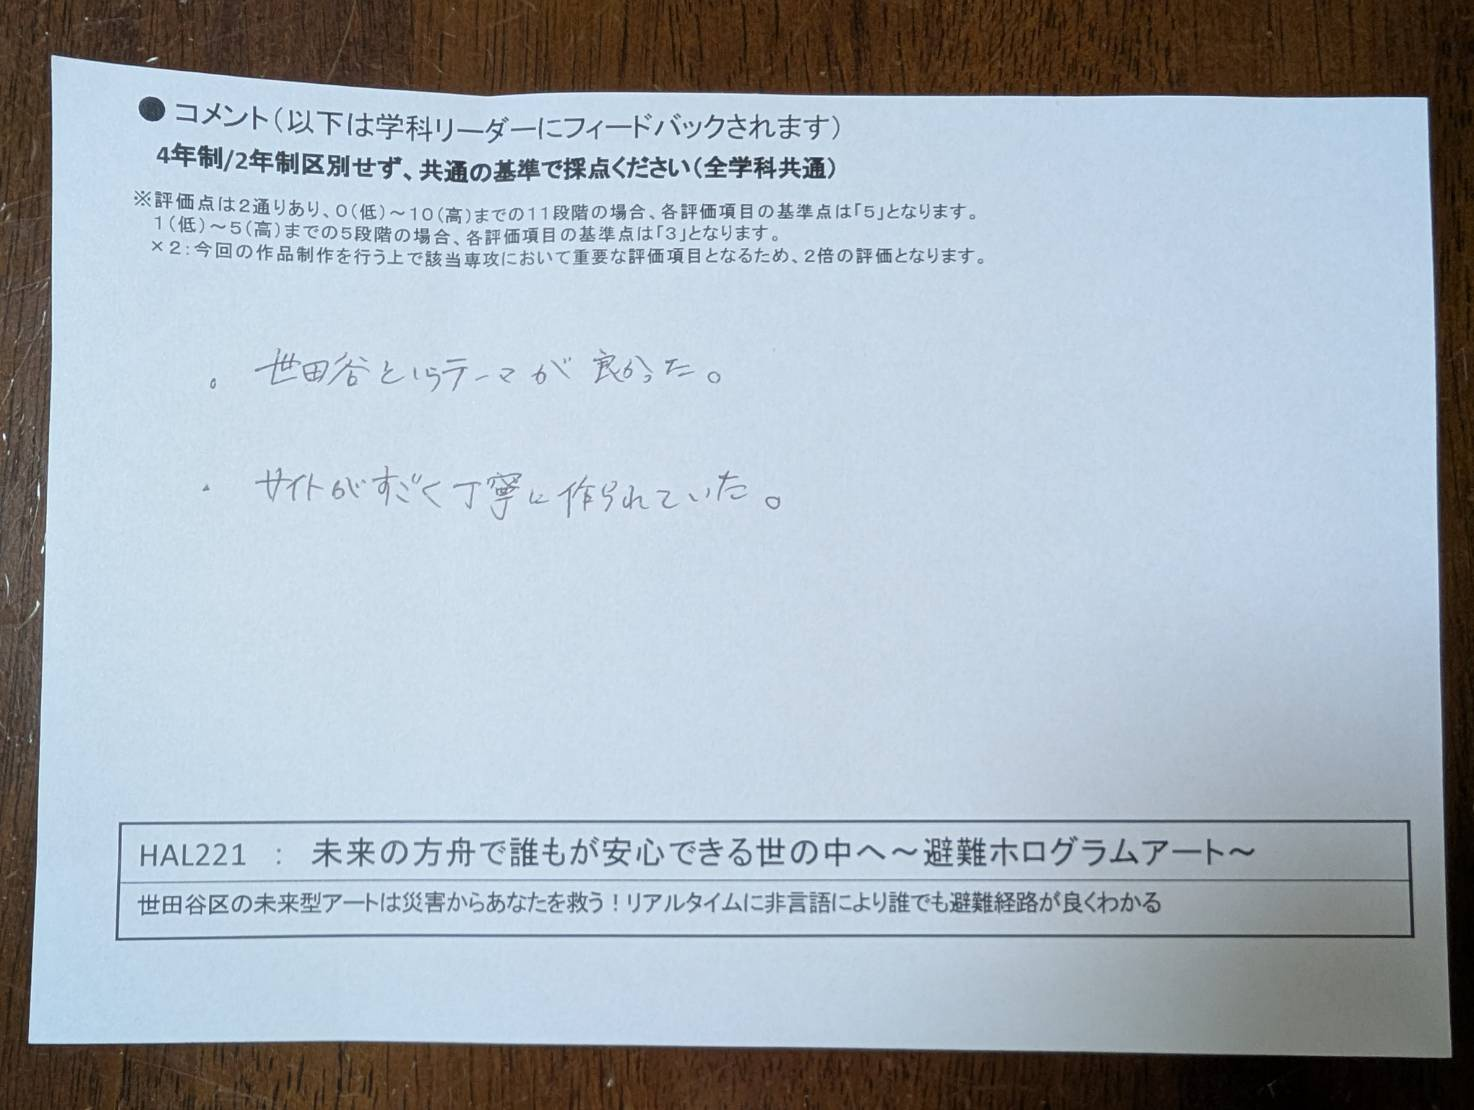 ● コメント(以下は学科リーダーにフィードバックされます)
4年制/2年制区別せず、共通の基準で採点ください(全学科共通)
※評価点は2通りあり、0(低)～10(高)までの11段階の場合、各評価項目の基準点は「5」となります。
1(低)～5(高)までの5段階の場合、各評価項目の基準点は「3」となります。
×2:今回の作品制作を行う上で該当専攻において重要な評価項目となるため、2倍の評価となります。
。世田谷というテーマが良かった。
・サイトがすごく丁寧に作られていた。
HAL221 : 未来の方舟で誰もが安心できる世の中へ～避難ホログラムアート～
世田谷区の未来型アートは災害からあなたを救う!リアルタイムに非言語により誰でも避難経路が良くわかる